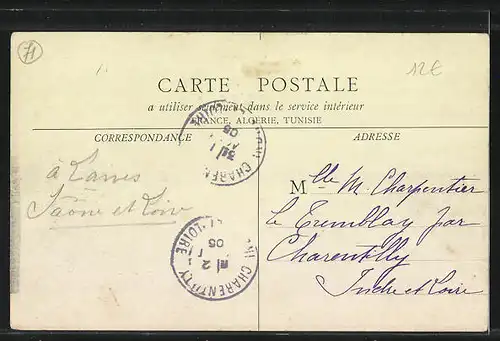 71
12€
CARTE POSTALE
a utiliser seulement dans le service intérieur
FRANCE, ALGERIE, TUNISIE
CORRESPONDANCE
ADRESSE
à
Saône et Loire
CHARENTILLY
05
CHARENTILLY
2
05
Mlle M. Charpentier
le Tremblay par
Charentilly
Indre et Loire